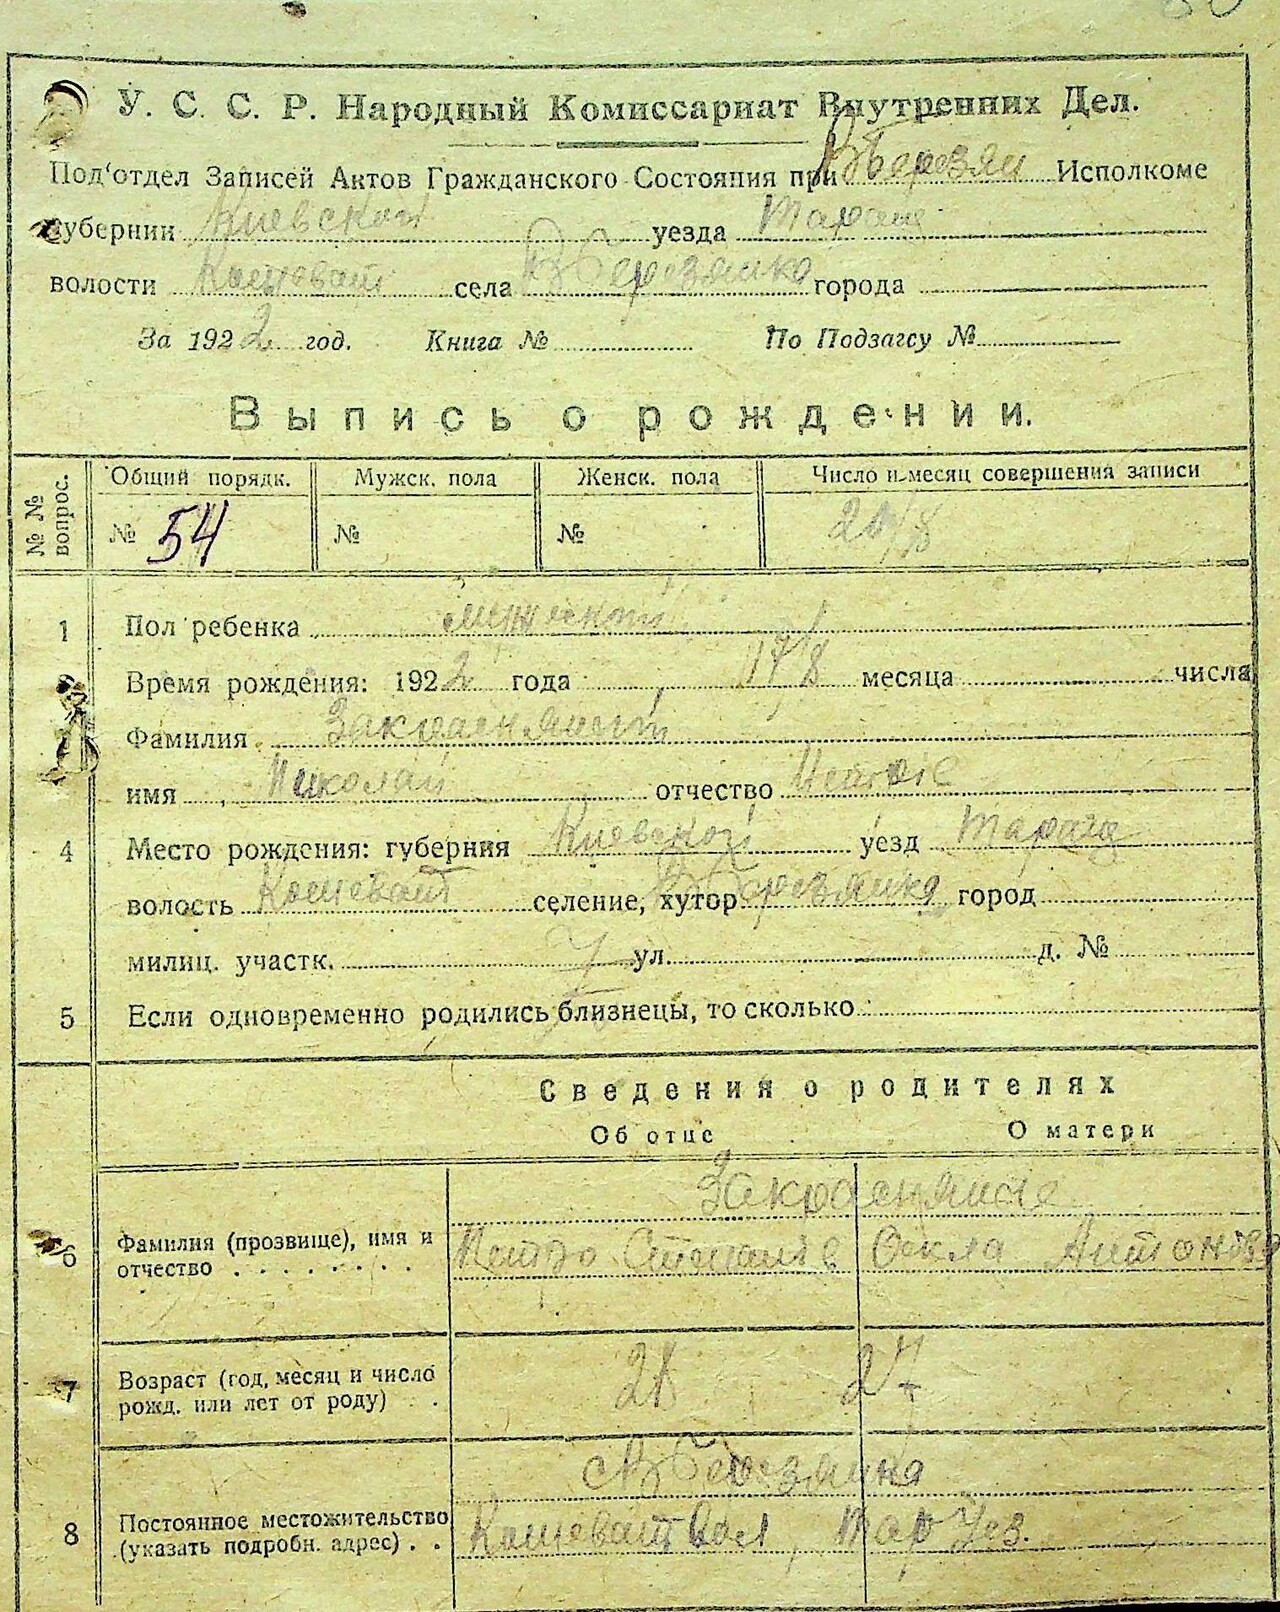 У. С. С. Р. Народный Комиссариат Внутренних Дел.
Под'отдел Записей Актов Гражданского Состояния при ВБерезян Исполкоме
Губернии Киевской уезда Таращ
волости Кошеват села ВБерезянка города
За 1922 год. Книга № По Подзагсу №
Выпись о рождении.
№ № вопрос. Общий порядк. Мужск. пола Женск. пола Число и месяц совершения записи
№ 54 № № 20/8
1 Пол ребенка мужеской
Время рождения: 1922 года 17/8 месяца числа
Фамилия
имя Николай отчество
4 Место рождения: губерния Киевской уезд Тараща
волость Кошеват селение, хутор ВБерезянка город
милиц. участк. ул. д. №
5 Если одновременно родились близнецы, то сколько
Сведения о родителях
Об отце О матери
6 Фамилия (прозвище), имя и
отчество Петро Антонова
7 Возраст (год, месяц и число
рожд. или лет от роду) 28 27
с ВБерезянка
8 Постоянное местожительство
(указать подробн. адрес) Кошеват вол, Тар Уез.